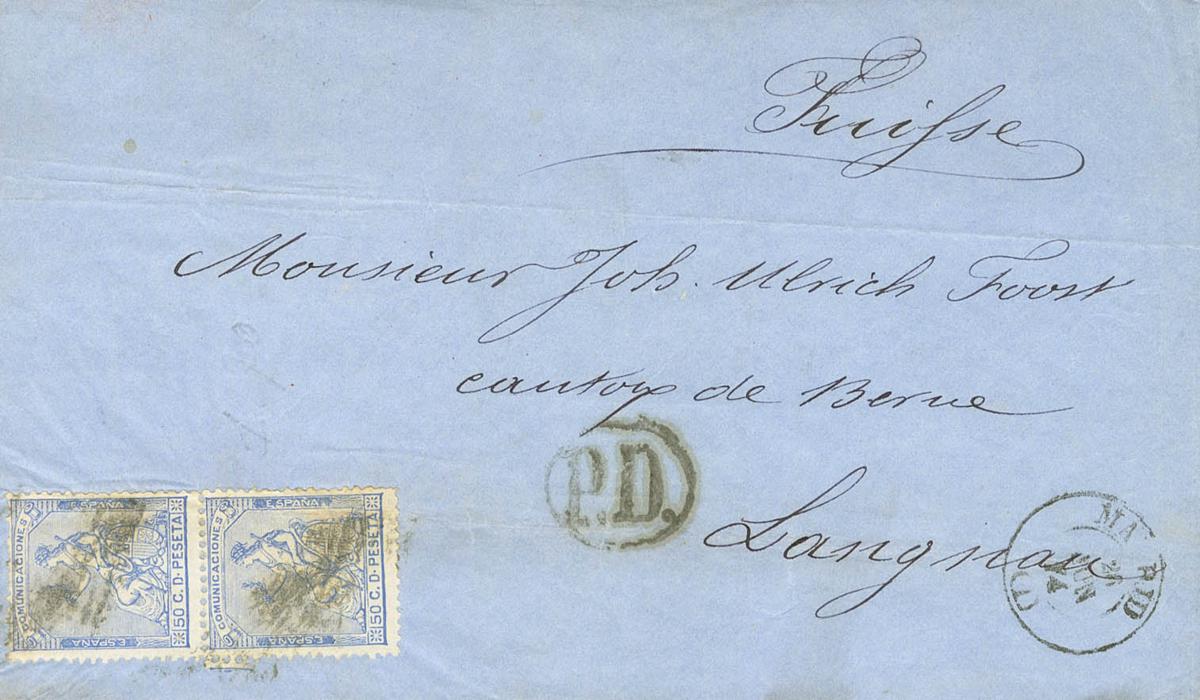 Suisse
Monsieur Joh. Ulrich Joost
canton de Berne
P.D.
Langnau
MADRID
JUN
74
ESPAÑA
COMUNICACIONES
50 C. D PESETA
ESPAÑA
ESPAÑA
COMUNICACIONES
50 C. D PESETA
ESPAÑA